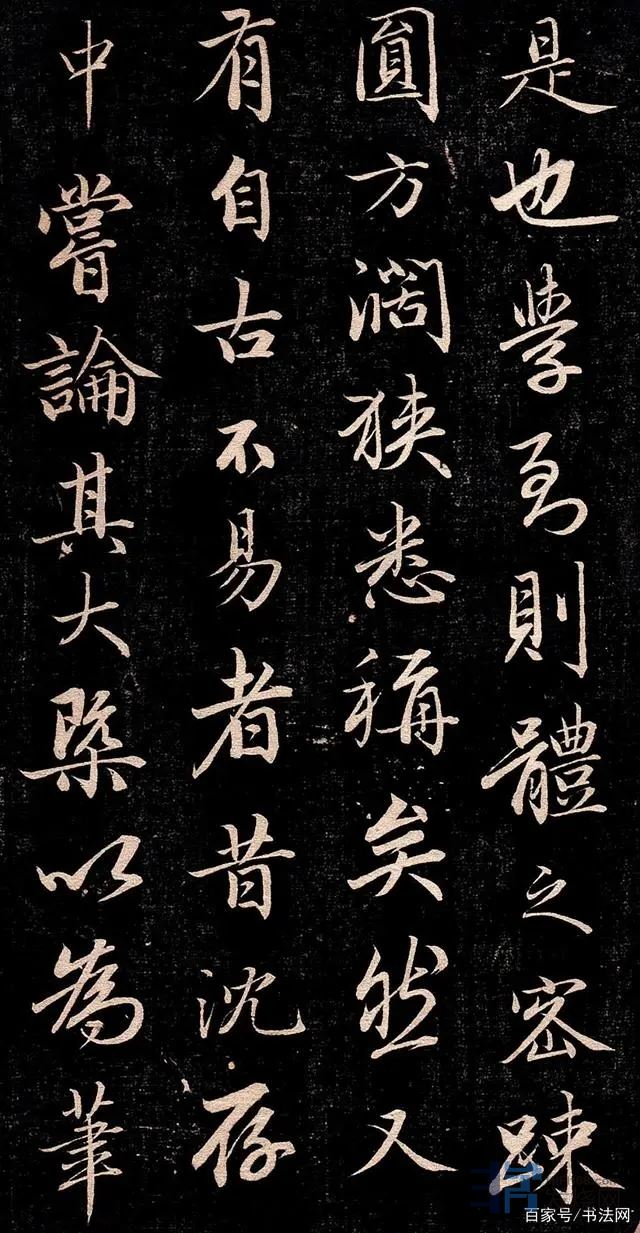 是也學到則體之密踈
圓方濶狹悉稱矣然又
有自古不易者昔沈存
中嘗論其大槩以為筆
百家号/书法网